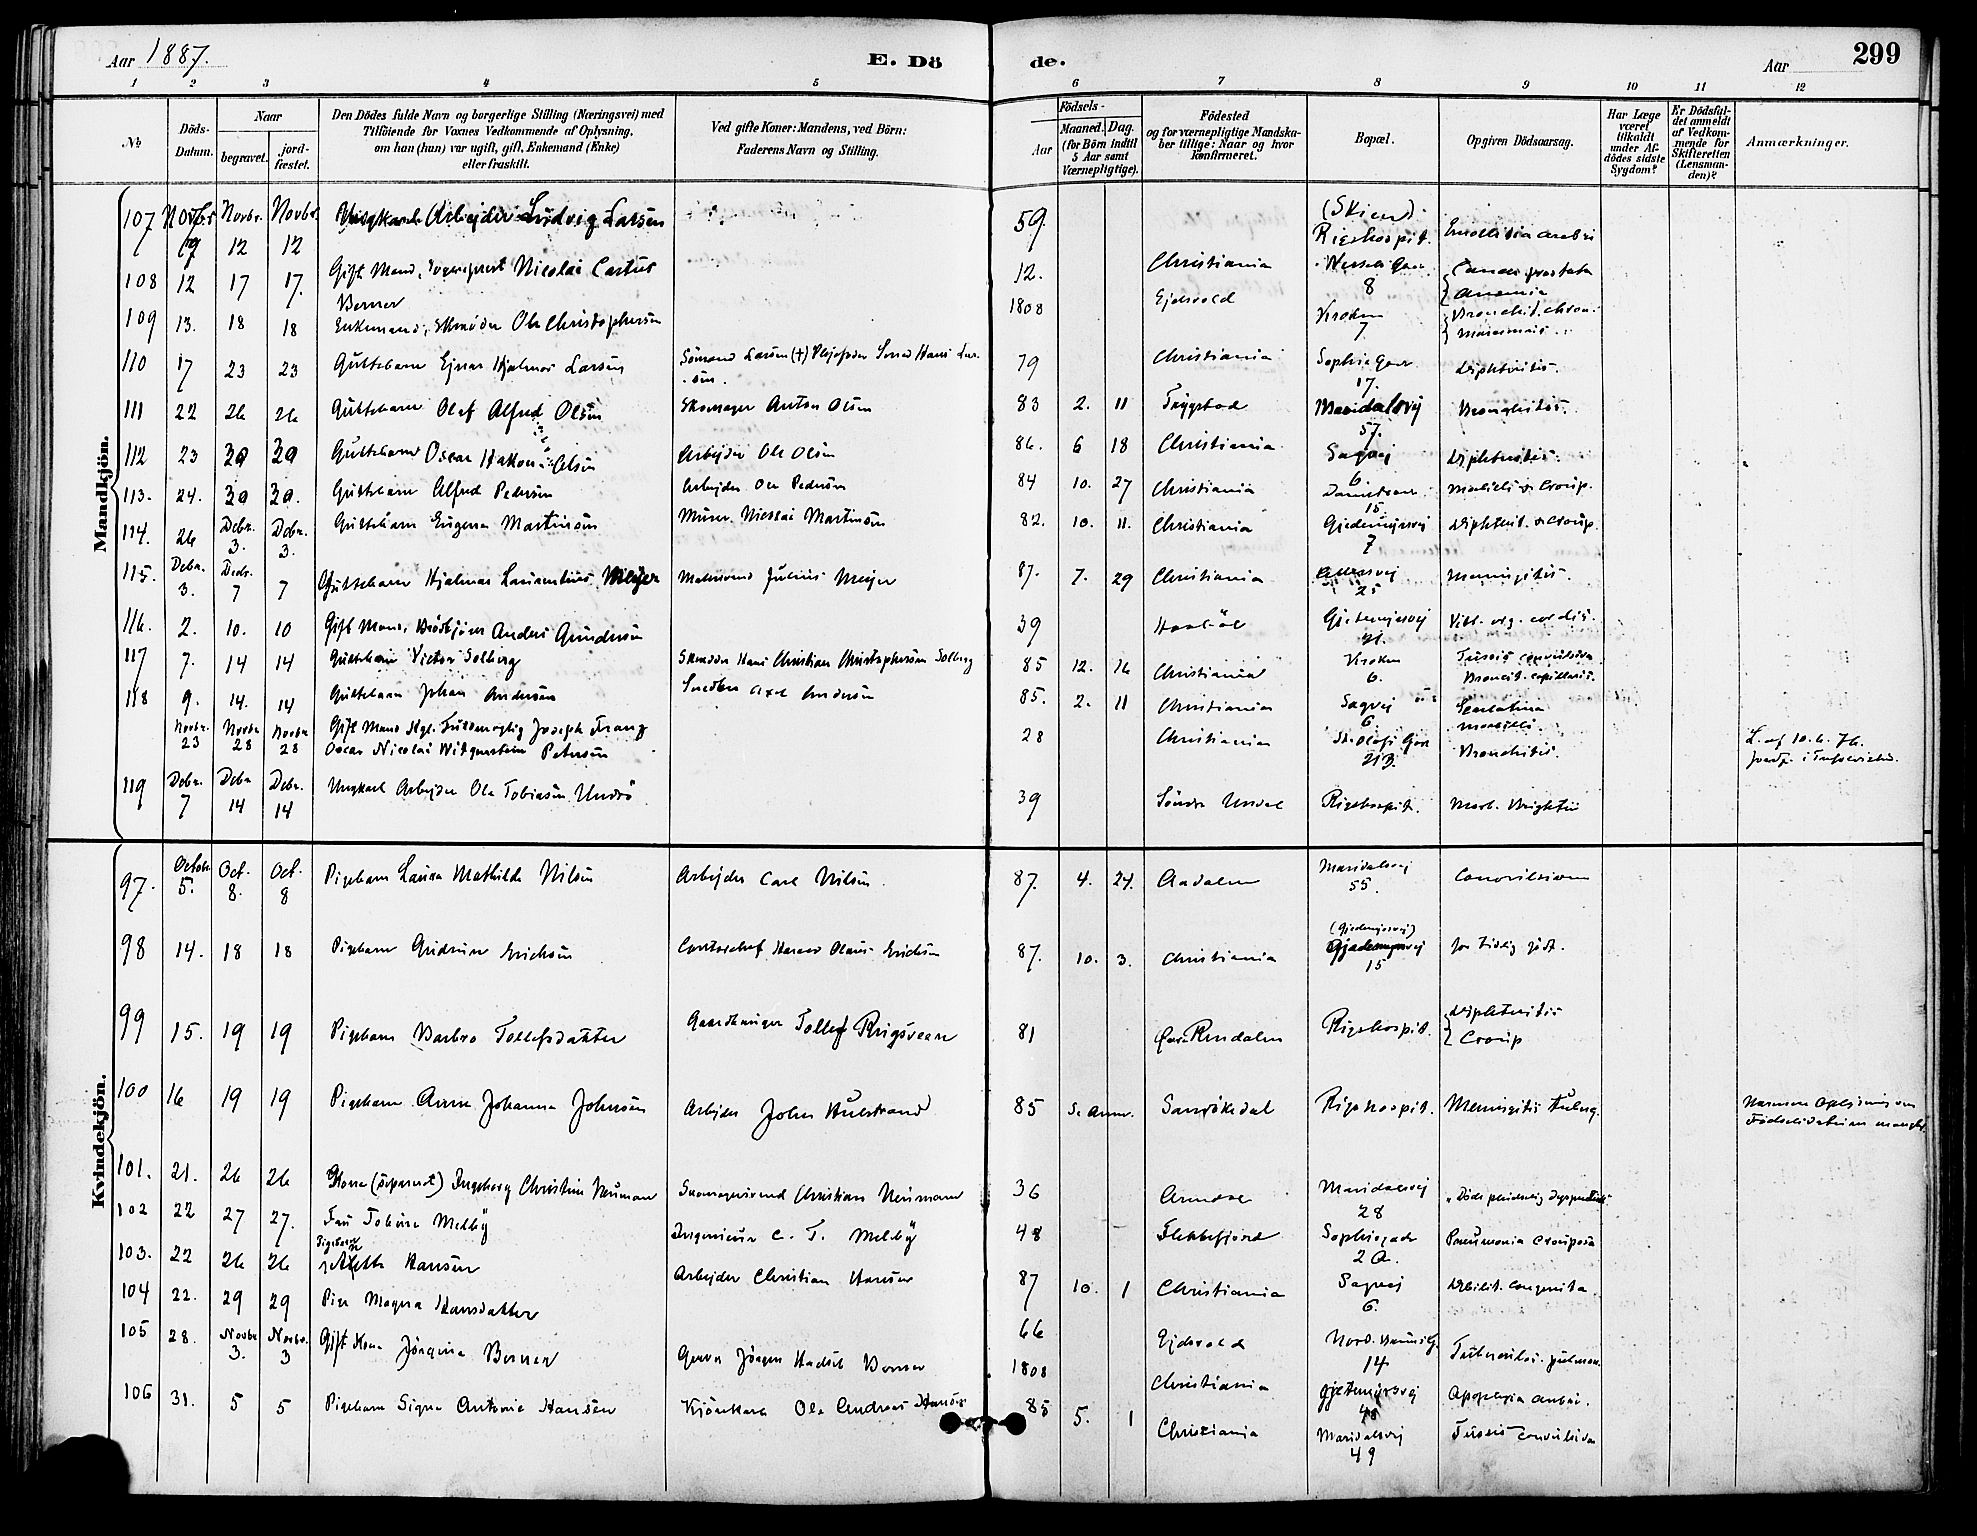 Aar 1887. E. Dö de. Aar 299
1 2 3 4 5 6 7 8 9 10 11 12
№
Döds-Datum.
Naar
begravet.
jord-fæstet.
Den Dödes fulde Navn og borgerlige Stilling (Næringsvei) med
Tilföiende for Voxnes Vedkommende af Oplysning,
om han (hun) var ugift, gift, Enkemand (Enke)
eller fraskilt.
Ved gifte Koner: Mandens, ved Börn:
Faderens Navn og Stilling.
Födsels-
Aar
Maaned. Dag.
(for Börn indtil
5 Aar samt
Værnepligtige).
Födested
og for værnepligtige Mandska-
ber tillige: Naar og hvor
konfirmeret.
Bopæl.
Opgiven Dödsaarsag.
Har Læge
været
tilkaldt
under Af-
dödes sidste
Sygdom?
Er Dödsfal-
det anmeldt
af Vedkom-
mende for
Skifteretten
(Lensman-
den)?
Anmærkninger.
Mandkjön.
107 Novbr. 7 Novbr. 12 Novbr. 12 Arbejder Ludvig Larsen 59. (Skien) Rigshospit.
108 12 17 17. Gift Mand, Nicolai Carlus Berner 12. Christiania 8 Anæmia
109 13. 18 18 Enkemand, Ole Christophersen 1808 Ejdsvold Kroken 7. Bronchit. chron.
110 17 23 23 Guttebarn Ejnar Hjalmar Larsen Sömand Larsen (†) 79 Christiania Sophiegaden 17. Diphteritis.
111 22 26 26 Guttebarn Olaf Alfred Olsen Skomager Anton Olsen 83 2. 11 Trygstad Maridalsvej 57. Bronchitis.
112 23 30 30 Guttebarn Oscar Hakon Olsen Arbejder Ole Olsen 86. 6 18 Christiania Sagvej 6 Diphteritis.
113. 24. 30 30. Guttebarn Alfred Pedersen Arbejder Ole Pedersen 84 10. 27 Christiania 15. Morbilli & Croup.
114. 26 Debr. 3. Debr. 3. Guttebarn Eugen Martinsen Murer Nicolai Martinsen 82. 10. 11. Christiania Gjedemyrsvej 7 Diphterit. & Croup.
115. Debr. 3. Debr. 7 7 Guttebarn Hjalmar Laurentius Meyer Malersvend Julius Meyer 87. 7. 29 Christiania 25 Meningitis.
116. 2. 10. 10 Gift Mand, Anders Gundersen 39 Gjetemyrsvej 21. Vit. org. cordis.
117 7. 14 14 Guttebarn Victor Solberg Skrædder Hans Christian Christophersen Solberg 85 12. 16 Christiania Kroken 6. Tussis convulsiva Bronchit. capillaris.
118 9. 14. 14 Guttebarn Johan Andersen Snedker Axel Andersen 85. 2. 11 Christiania Sagvej 6. Scarlatina morbilli.
Novbr. 23 Novbr. 28 Novbr. 28 Gift Mand Kgl. Fuldmægtig Joseph Franz Oscar Nicolai Wittgenstein Petersen 28 Christiania St. Olafs Gade 21B. Bronchitis. L. af 10.6.76.
119 Debr. 7 Debr. 14 Debr. 14 Ungkarl Arbejder Ole Tobiasen Undrö 39 Söndre Undal Rigshospit. Morb. Brightii
Kvindekjön.
97. October 5. Oct. 8. Oct. 8 Pigebarn Laura Mathilde Nilsen Arbejder Carl Nilsen. 87. 4. 24. Aadalen Maridalsvej 55. Convulsiones
98 14. 18 18 Pigebarn Gudrun Erichsen Contorchef Olaus Erichsen 87. 10. 3. Christiania (Gjedemyrsvej) Gjedemyrsvej 15 for tidlig född.
99 15. 19 19 Pigebarn Barbro Tollefsdatter Gaardbruger Tollef Ringsveen 81 Rendalen Rigshospit. Diphteritis Croup
100 16 19 19 Pigebarn Anna Johanna Johnsen Arbejder John Hulstrand 85 Se Anm. Sannökedal Rigshospit. Meningitis tuberc. Nærmere Oplysning om Födselsdatum mangler
101. 21. 26 26 Kone (separeret) Ingeborg Christine Neumann Skomagersvend Christian Neumann 36 Arendal Maridalsvej 28
102 22 27 27. Fru Toline Melby Ingenieur C. T. Melby 48 Flekkefjord Sophiegade 2a. Pneumonia crouposa
103. 22 26 26 Pigebarn Hansen Arbejder Christian Hansen 87 10. 1 Christiania Sagvej 6. Debilit. congenita.
104 22. 29 29 Pige Magna Hansdatter 66 Ejdsvold 14 Tuberculos. pulmon.
105 28. Novbr. 3. Novbr. 3 Gift Kone Jörgine Berner Jörgen Berner 1808 Christiania Gjetemyrsvej 48 Apoplexia cerebri.
106 31. 5 5 Pigebarn Signe Antonie Hansen Ole Andreas Hansen 85 5. 1 Christiania Maridalsvej 49 Tussis convulsiva